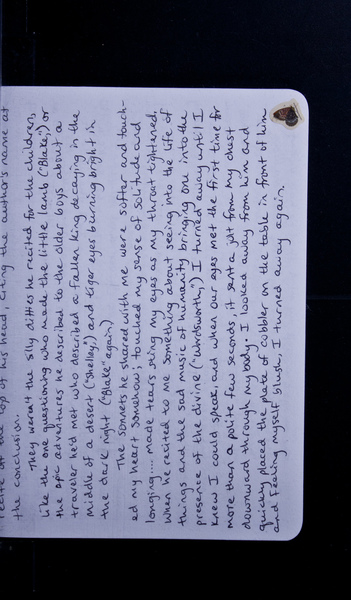 recite off the top of his head, citing the author's name at
the conclusion.
They weren't the silly ditties he recited for the children,
like the one questioning who made the little lamb ("Blake,") or
the epic adventures he described to the older boys about a
traveler he'd met who described a fallen king decaying in the
middle of a desert ("Shelley,") and tiger eyes burning bright in
the dark night ("Blake" again.)
The sonnets he shared with me were softer and touch-
ed my heart somehow; touched my sense of solitude and
longing.... made tears sting my eyes as my throat tightened.
When he recited to me something about seeing into the life of
things and the sad music of humanity bringing one into the
presence of the divine ("Wordsworth,") I turned away until I
knew I could speak, and when our eyes met the first time for
more than a polite few seconds, it sent a jolt from my chest
downward through my body. I looked away from him and
quickly placed the plate of cobbler on the table in front of him
and feeling myself blush, I turned away again.